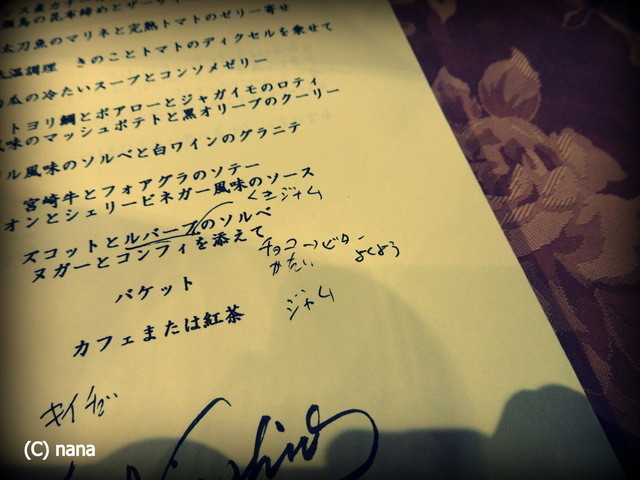 島の昆布締めと
太刀魚のマリネと完熟トマトのゼリー寄せ
低温調理 きのことトマトのディクセルを乗せて
瓜の冷たいスープとコンソメゼリー
トヨリ鯛とポアローとジャガイモのロティ
風味のマッシュポテトと黒オリーブのクーリー
ル風味のソルベと白ワインのグラニテ
宮崎牛とフォアグラのソテー
オンとシェリービネガー風味のソース
くきジャム
ズコットとルバーブのソルベ
ヌガーとコンフィを添えて
チョコ→ビター
かたい
バケット
ジャム
カフェまたは紅茶
キイチゴ
(C) nana